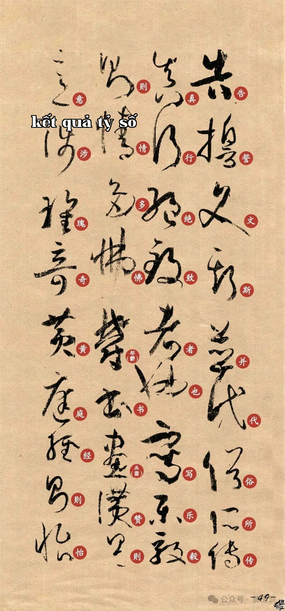 告誓文斯并代俗所传
真行绝致者也写乐毅
则情多怫郁书画赞则
意涉瑰奇黄庭经则怡
kết quả tỷ số
公众号
-49-